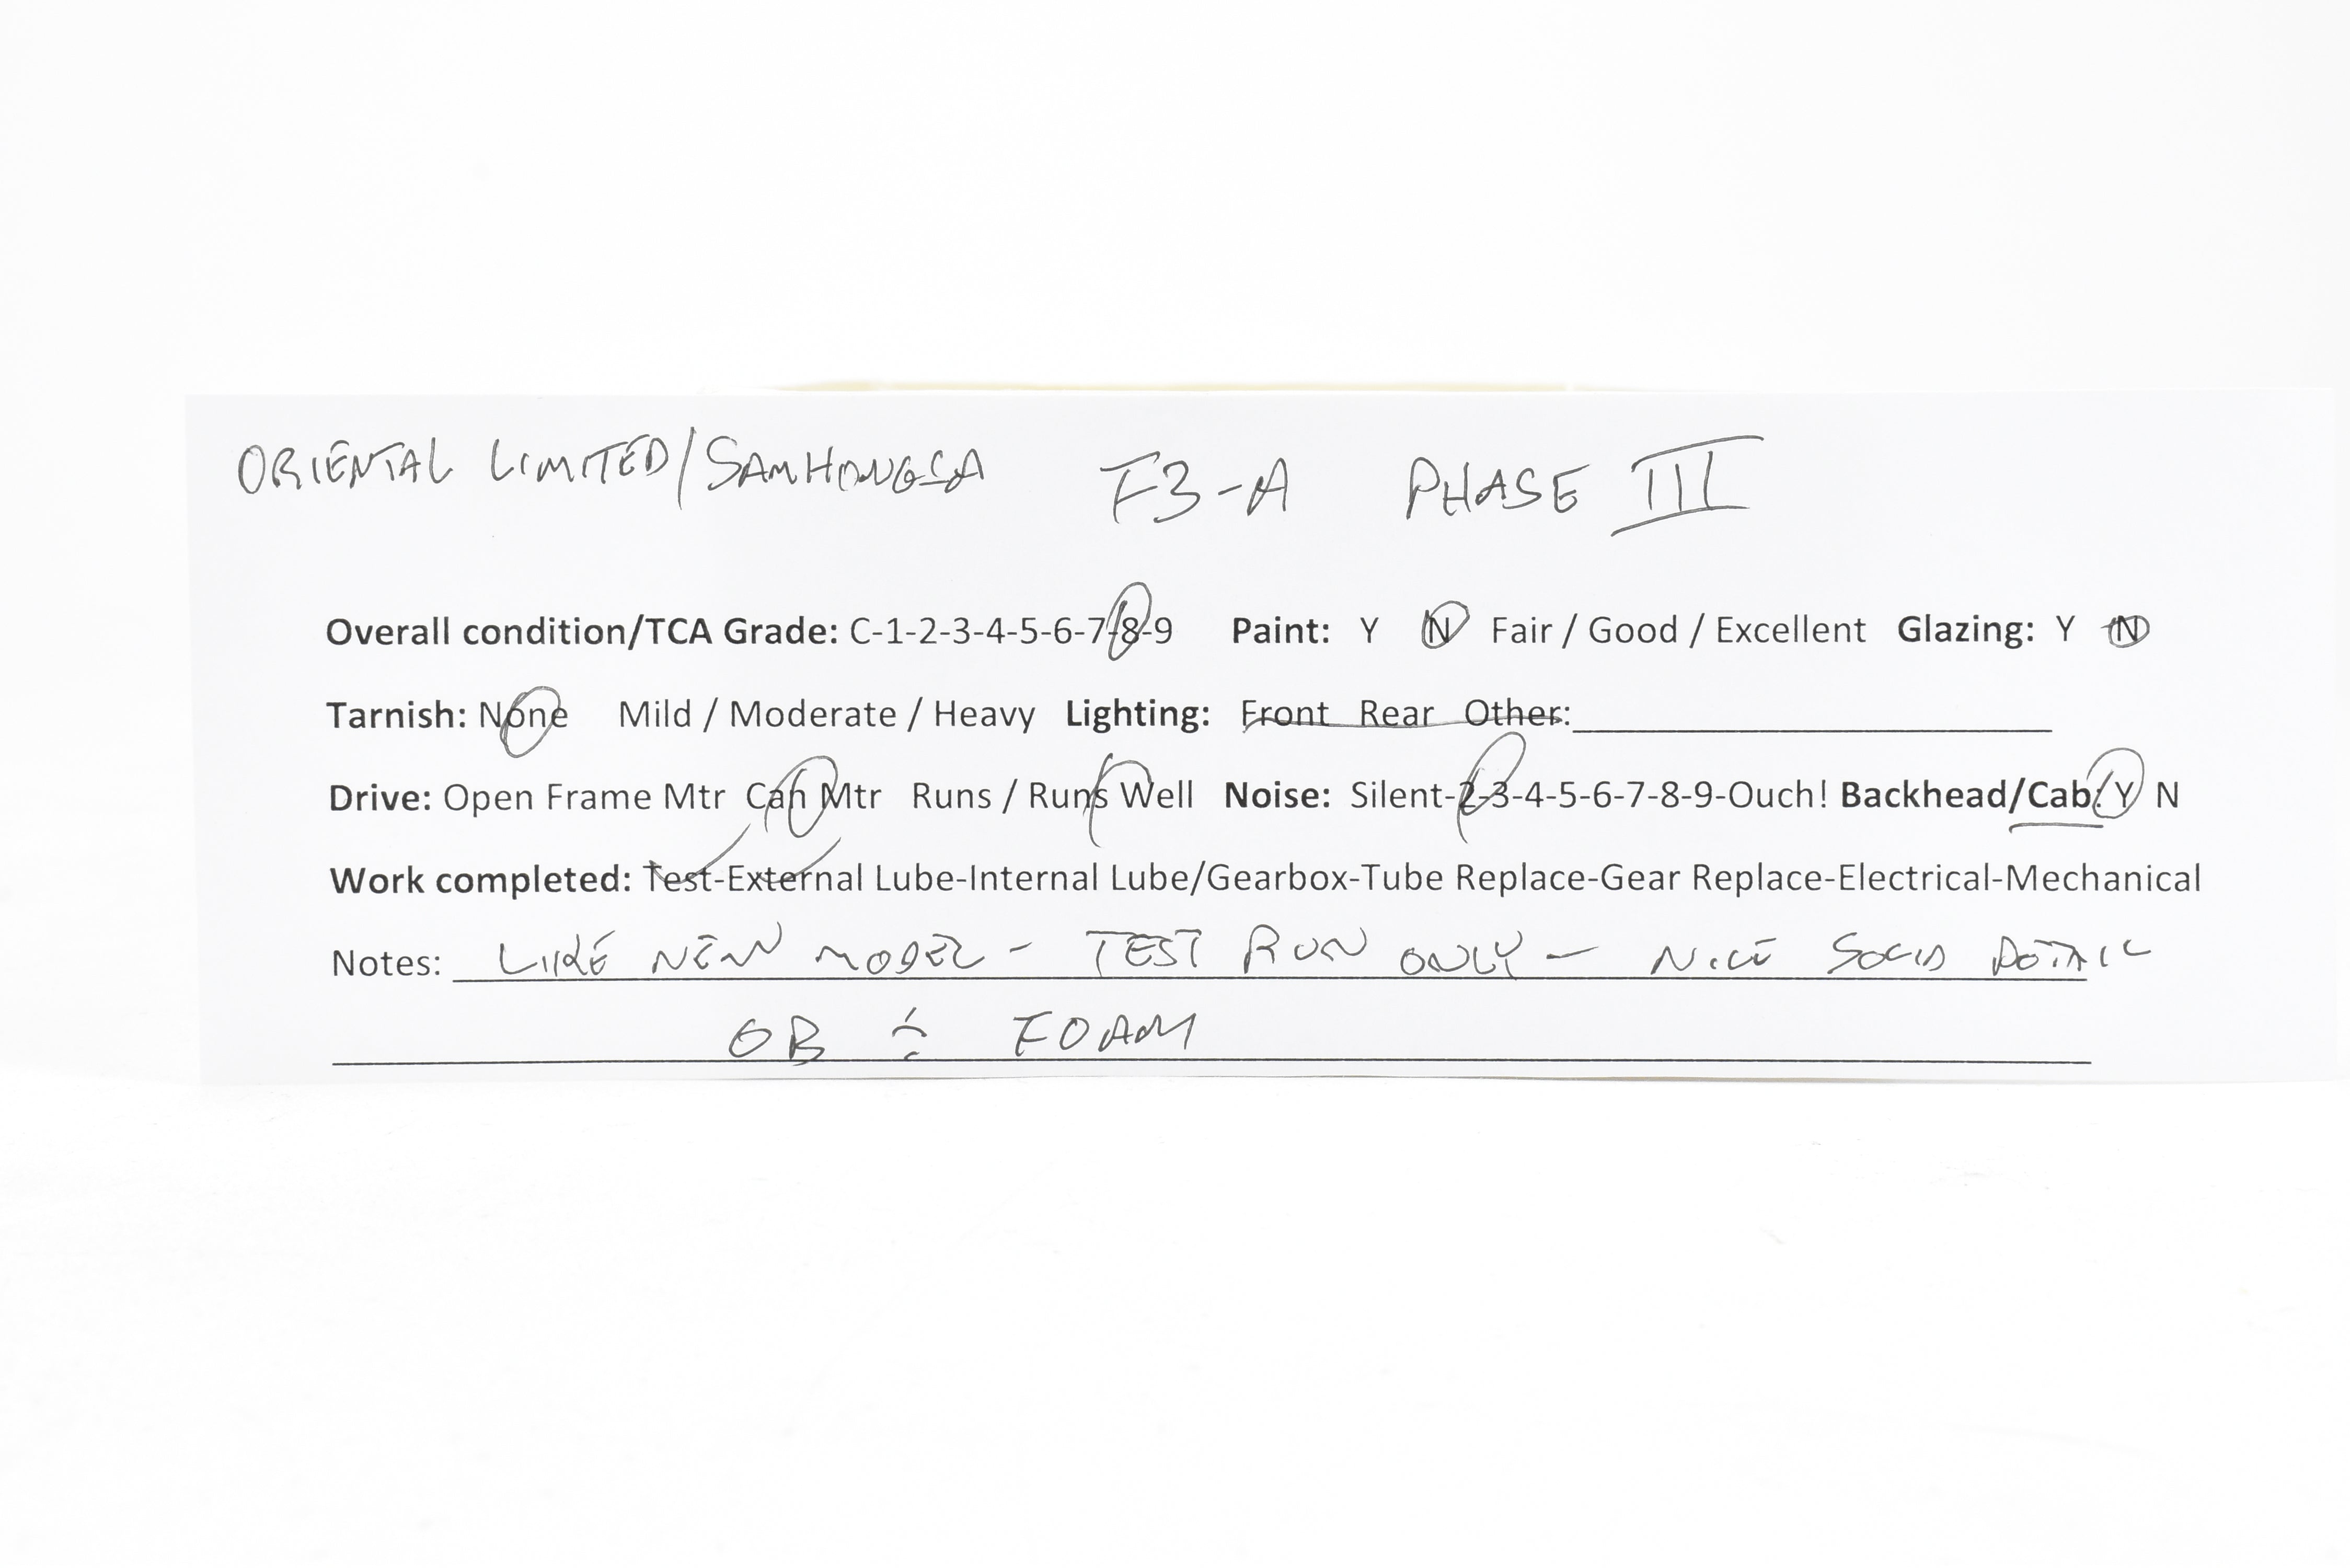 ORIENTAL LIMITED/SAMHONGSA F3-A PHASE III
Overall condition/TCA Grade: C-1-2-3-4-5-6-7-8-9 Paint: Y N Fair / Good / Excellent Glazing: Y N
Tarnish: None Mild / Moderate / Heavy Lighting: Front Rear Other:
Drive: Open Frame Mtr Can Mtr Runs / Runs Well Noise: Silent-2-3-4-5-6-7-8-9-Ouch! Backhead/Cab: Y N
Work completed: Test-External Lube-Internal Lube/Gearbox-Tube Replace-Gear Replace-Electrical-Mechanical
Notes: LIKE NEW MODEL - TEST RUN ONLY - NICE SOLID DETAIL
OB ÷ FOAM